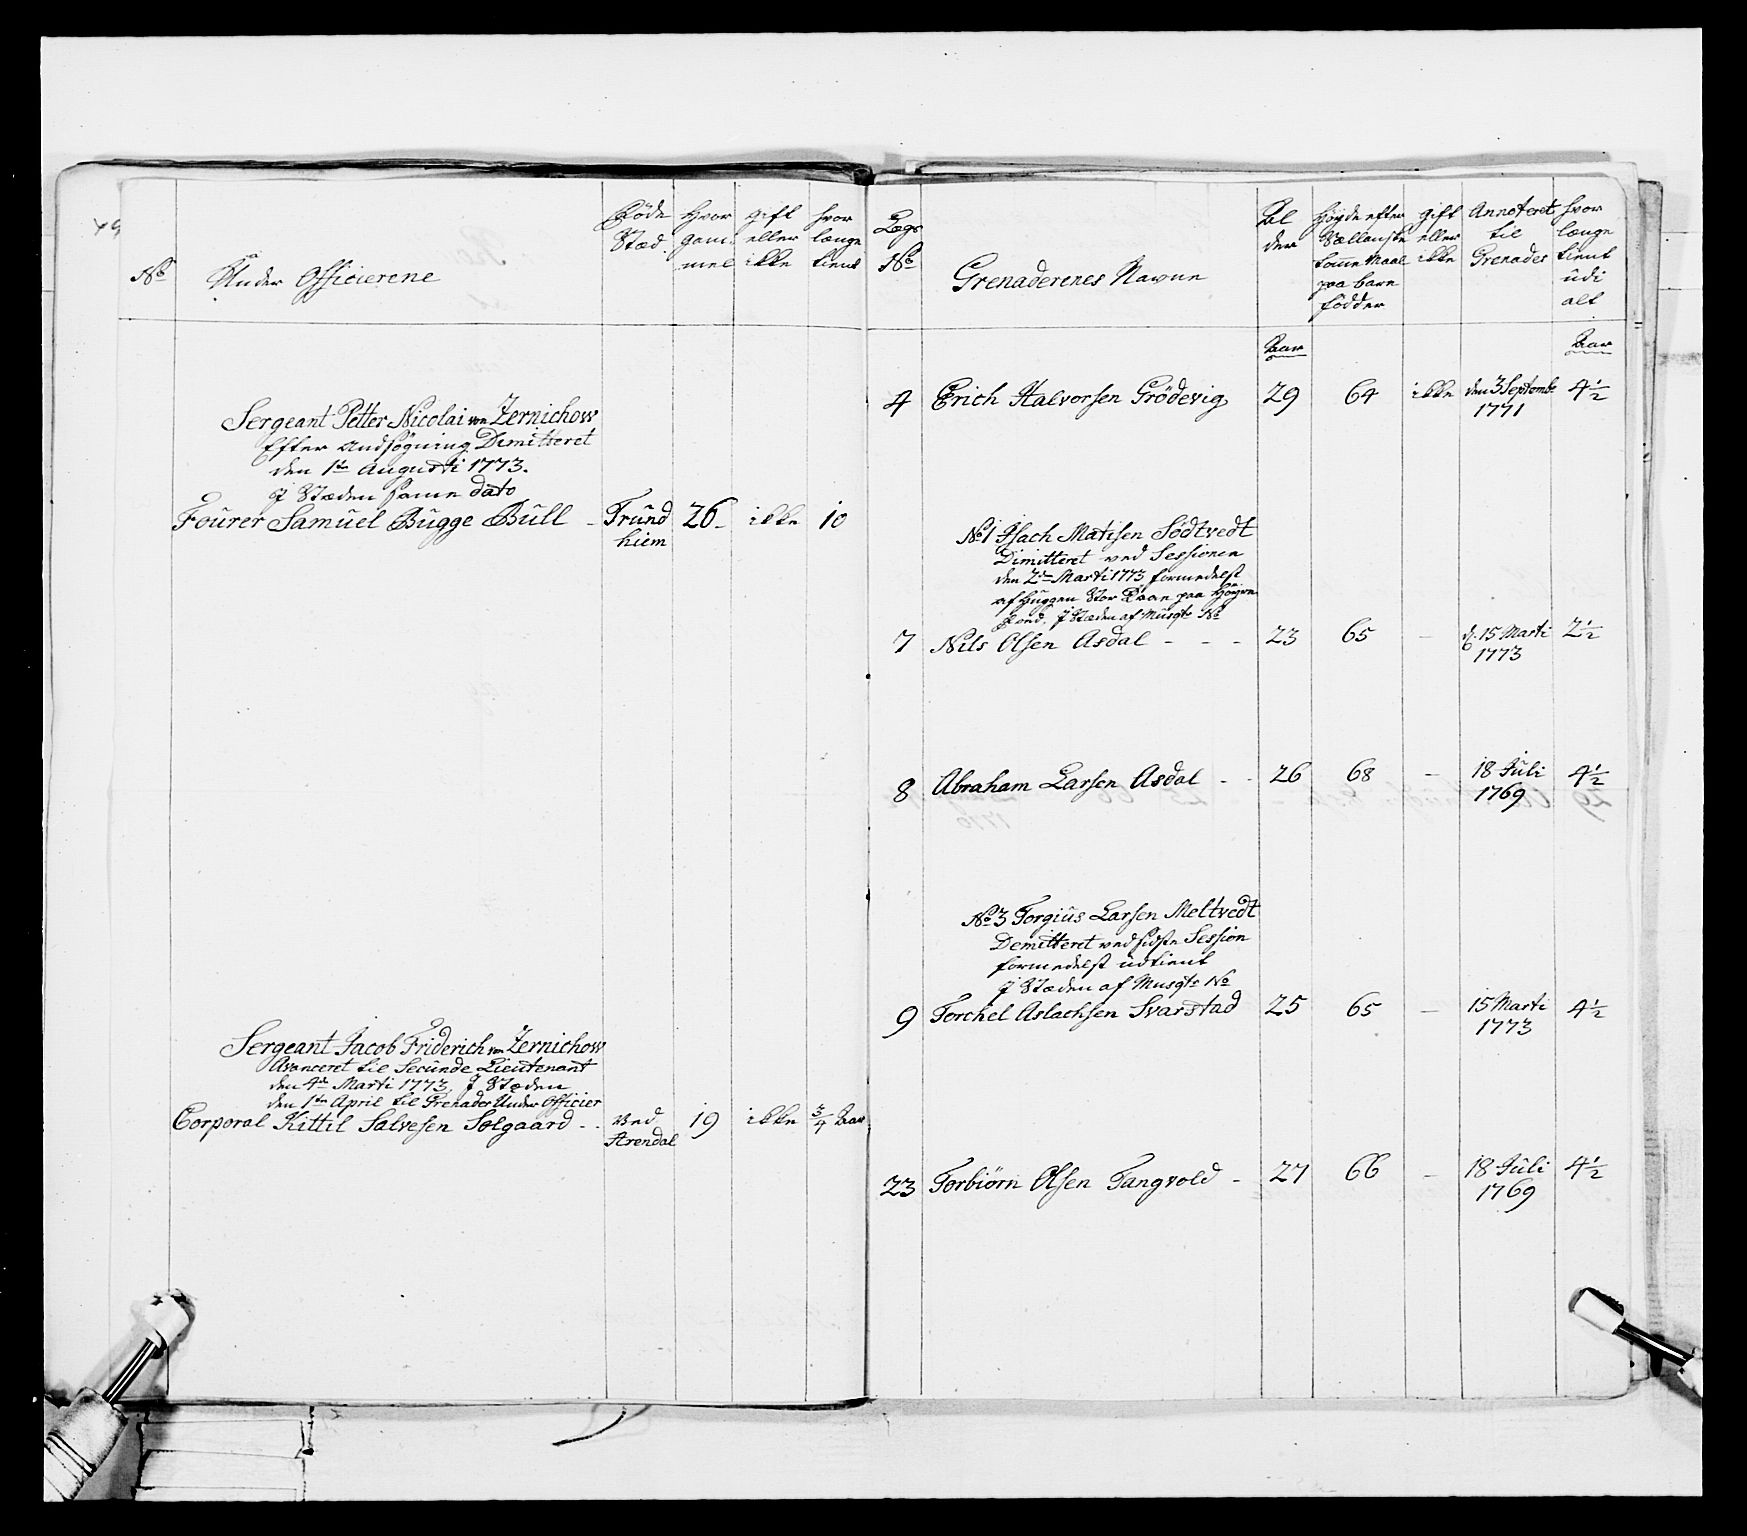 No
Under Officierene
Føde
Stæd
Hvor
gam̄
mel
gift
eller
ikke
hvor
længe
tient
Sergeant Petter Nicolai von Zernichow
Efter Andsøgning Dimitteret
den 1te Augusti 1773.
I Stæden samme dato
Fourer Samuel Bugge Bull - Trund 26 - ikke 10
hiem
Sergeant Jacob Friderich von Zernichow
Avanceret til Secunde Lieutenant
den 4de Marti 1773, I Stæden
den 1te April til Grenader Under Officier
Corporal Kittil Salvesen Solgaard - - ved 19 ikke 3/4 Aar
Arendal
Lægs
No
Grenaderenes Navne
Al
der
Høyde efter
Sællandske
tomme Maal
paa bare
fødder
gift
eller
ikke
Annoteret
til
Grenader
hvor
længe
tient
udi
alt
Aar
Aar
4 Erich Halvorsen Grødevig 29 64 ikke den 3 Septembr 4 1/2
1771
No 1 Isach Matisen Sødtvedt
Dimitteret ved Sessionen
den 2den Marti 1773 formedelst
af Huggen Stor Skaar paa Høyre
I Stæden af Musqt No
7 Nils Olsen Asdal - - - 23 65 - d. 15 Marti 2 1/2
1773
8 Abraham Larsen Asdal - - 26 68 - 18 Juli 4 1/2
1769
No 3 Torgius Larsen Meltvedt
Demitteret ved sidste Session
formedelst udtient
I Stæden af Musqt No
9 Torchel Aslachsen Svarstad 25 65 - 15 Marti 4 1/2
1773
23 Torbiørn Olsen Tangvold - 27 66 - 18 Juli 4 1/2
1769